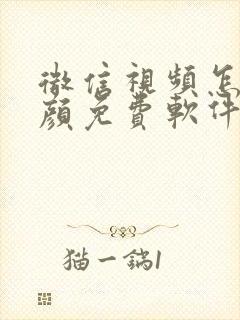 微信視頻怎
顏免費軟件
猫一鍋1